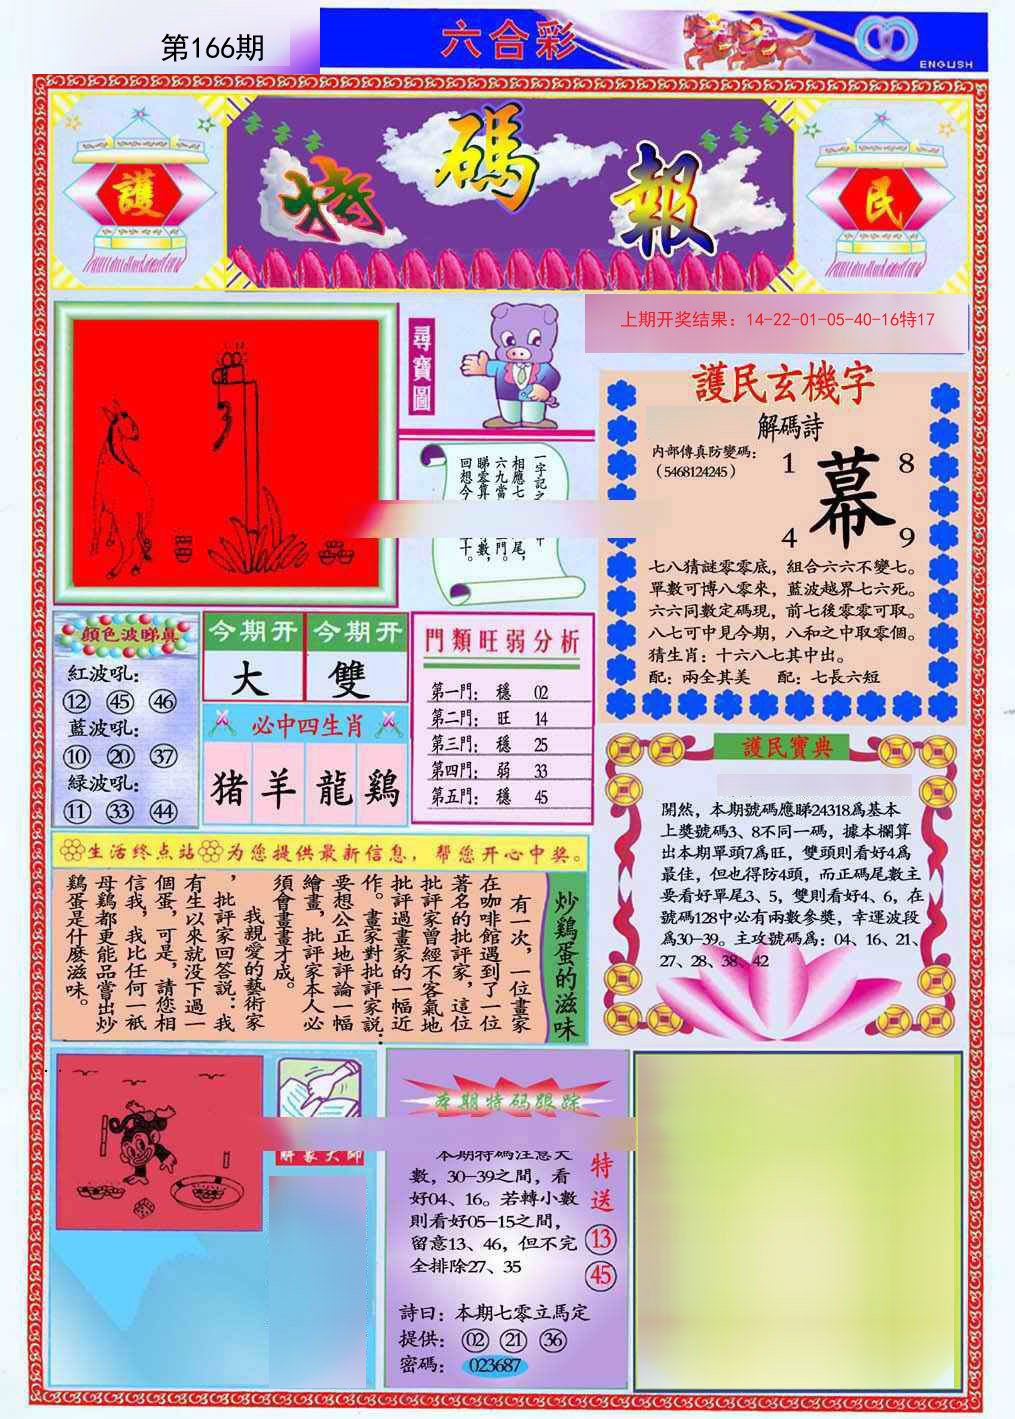 第166期
六合彩
ENGLISH
護
特碼報
民
尋寶圖
上期开奖结果：14-22-01-05-40-16特17
護民玄機字
解碼詩
内部傳真防變碼：
（5468124245）
1 8
幕
4 9
七八猜謎零零底，組合六六不變七。
單數可博八零來，藍波越界七六死。
六六同數定碼現，前七後零零可取。
八七可中見今期，八和之中取零個。
猜生肖：十六八七其中出。
配：兩全其美 配：七長六短
一字記之
相應七 尾，
六九當 門。
睇零算 數，
回想今 十。
顔色波睇真
紅波吼：
12 45 46
藍波吼：
10 20 37
緑波吼：
11 33 44
今期开 今期开
大 雙
必中四生肖
猪 羊 龍 鷄
門類旺弱分析
第一門： 穩 02
第二門： 旺 14
第三門： 穩 25
第四門： 弱 33
第五門： 穩 45
護民寶典
開然，本期號碼應睇24318爲基本
上獎號碼3、8不同一碼，據本欄算
出本期單頭7爲旺，雙頭則看好4爲
最佳，但也得防4頭，而正碼尾數主
要看好單尾3、5，雙則看好4、6，在
號碼128中必有兩數参獎，幸運波段
爲30—39。主攻號碼爲：04、16、21、
27、28、38、42
生活终点站 为您提供最新信息，帮您开心中奖。
炒鷄蛋的滋味
有一次，一位畫家
在咖啡館遇到了一位
著名的批評家，這位
批評家曾經不客氣地
批評過畫家的一幅近
作。畫家對批評家説：
要想公正地評論一幅
繪畫，批評家本人必
須會畫畫才成。
我親愛的藝術家
，批評家回答説：我
有生以來就没下過一
個蛋，可是，請您相
信我，我比任何一衹
母鷄都更能品嘗出炒
鷄蛋是什麽滋味。
解象大師
本期特码跟踪
本期特碼注意大
數，30—39之間，看
好04、16。若轉小數
則看好05—15之間，
留意13、46，但不完
全排除27、35
特送
13
45
詩曰：本期七零立馬定
提供： 02 21 36
密碼： 023687